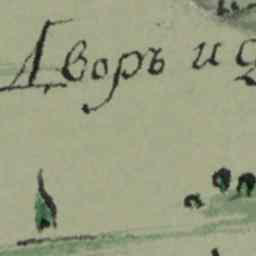 Дворъ и